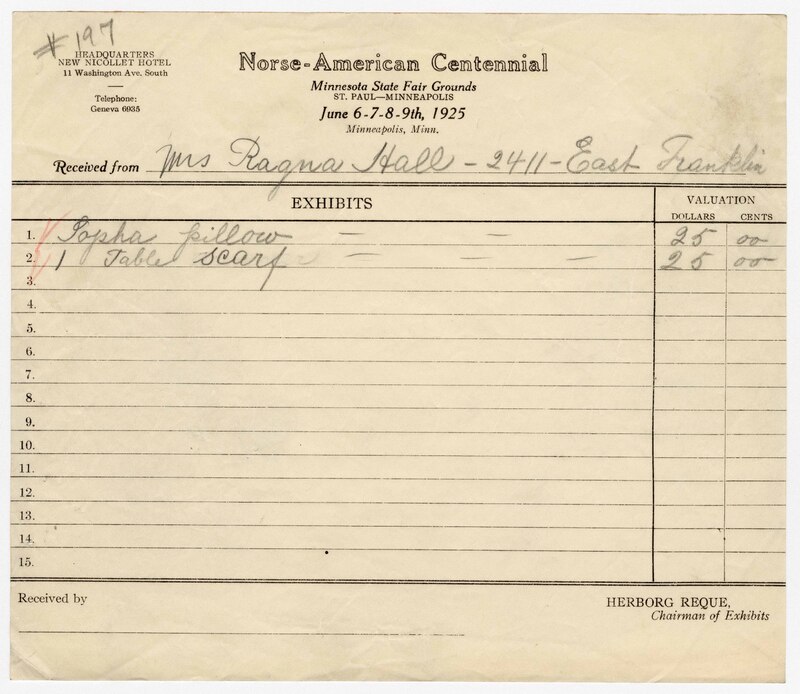 #197
HEADQUARTERS
NEW NICOLLET HOTEL
11 Washington Ave. South
Telephone:
Geneva 6935
Norse-American Centennial
Minnesota State Fair Grounds
ST. PAUL—MINNEAPOLIS
June 6-7-8-9th, 1925
Minneapolis, Minn.
Received from Mrs Ragna Hall - 2411 - East Franklin
EXHIBITS
VALUATION
DOLLARS CENTS
1. Sopha pillow — — 25 00
2. 1 Table scarf — — — 25 00
3.
4.
5.
6.
7.
8.
9.
10.
11.
12.
13.
14.
15.
Received by
HERBORG REQUE,
Chairman of Exhibits